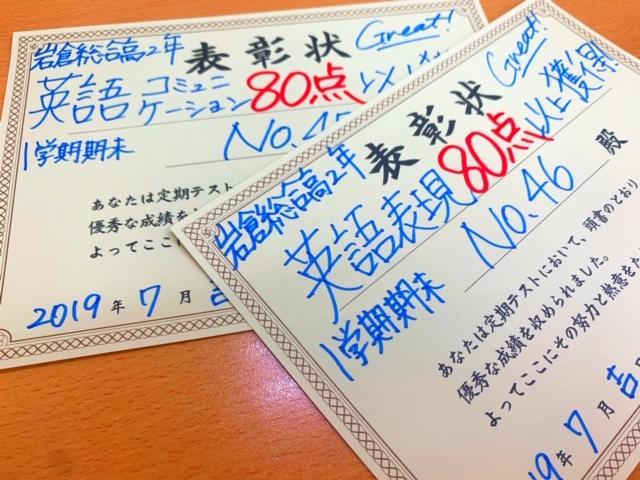 岩倉総合高2年
表彰状
Great!
英語コミュニケーション
80点
以上
1学期期末
No.45
あなたは定期テスト
優秀な成績を
よってここに
2019年7月吉
岩倉総合高2年
表彰状
Great!
英語表現
80点
以上獲得!
1学期期末
No.46
殿
あなたは定期テストにおいて、頭書のとおり
優秀な成績を収められました。
よってここにその努力と熱意をた
19年7月吉日